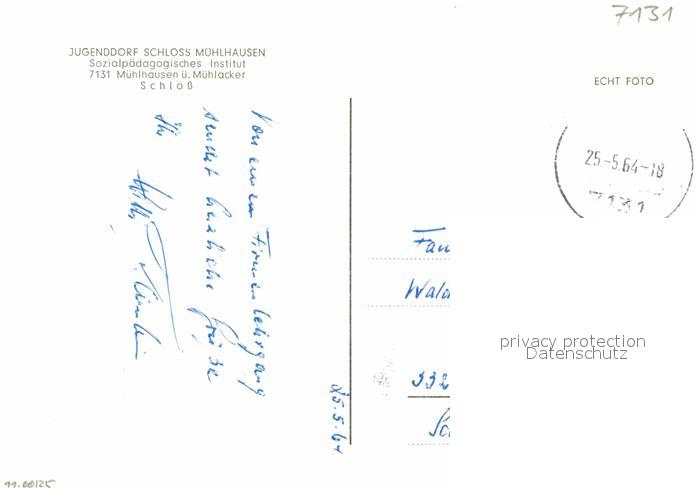 7131
JUGENDDORF SCHLOSS MÜHLHAUSEN
Sozialpädagogisches Institut
7131 Mühlhausen ü. Mühlacker
Schloß
ECHT FOTO
25-5.64-18
7131
Von einem Firmenlehrgang
sendet herzliche Grüße
Ihr
25.5.64
Fam
Wald
332
privacy protection
Datenschutz
11.00/25